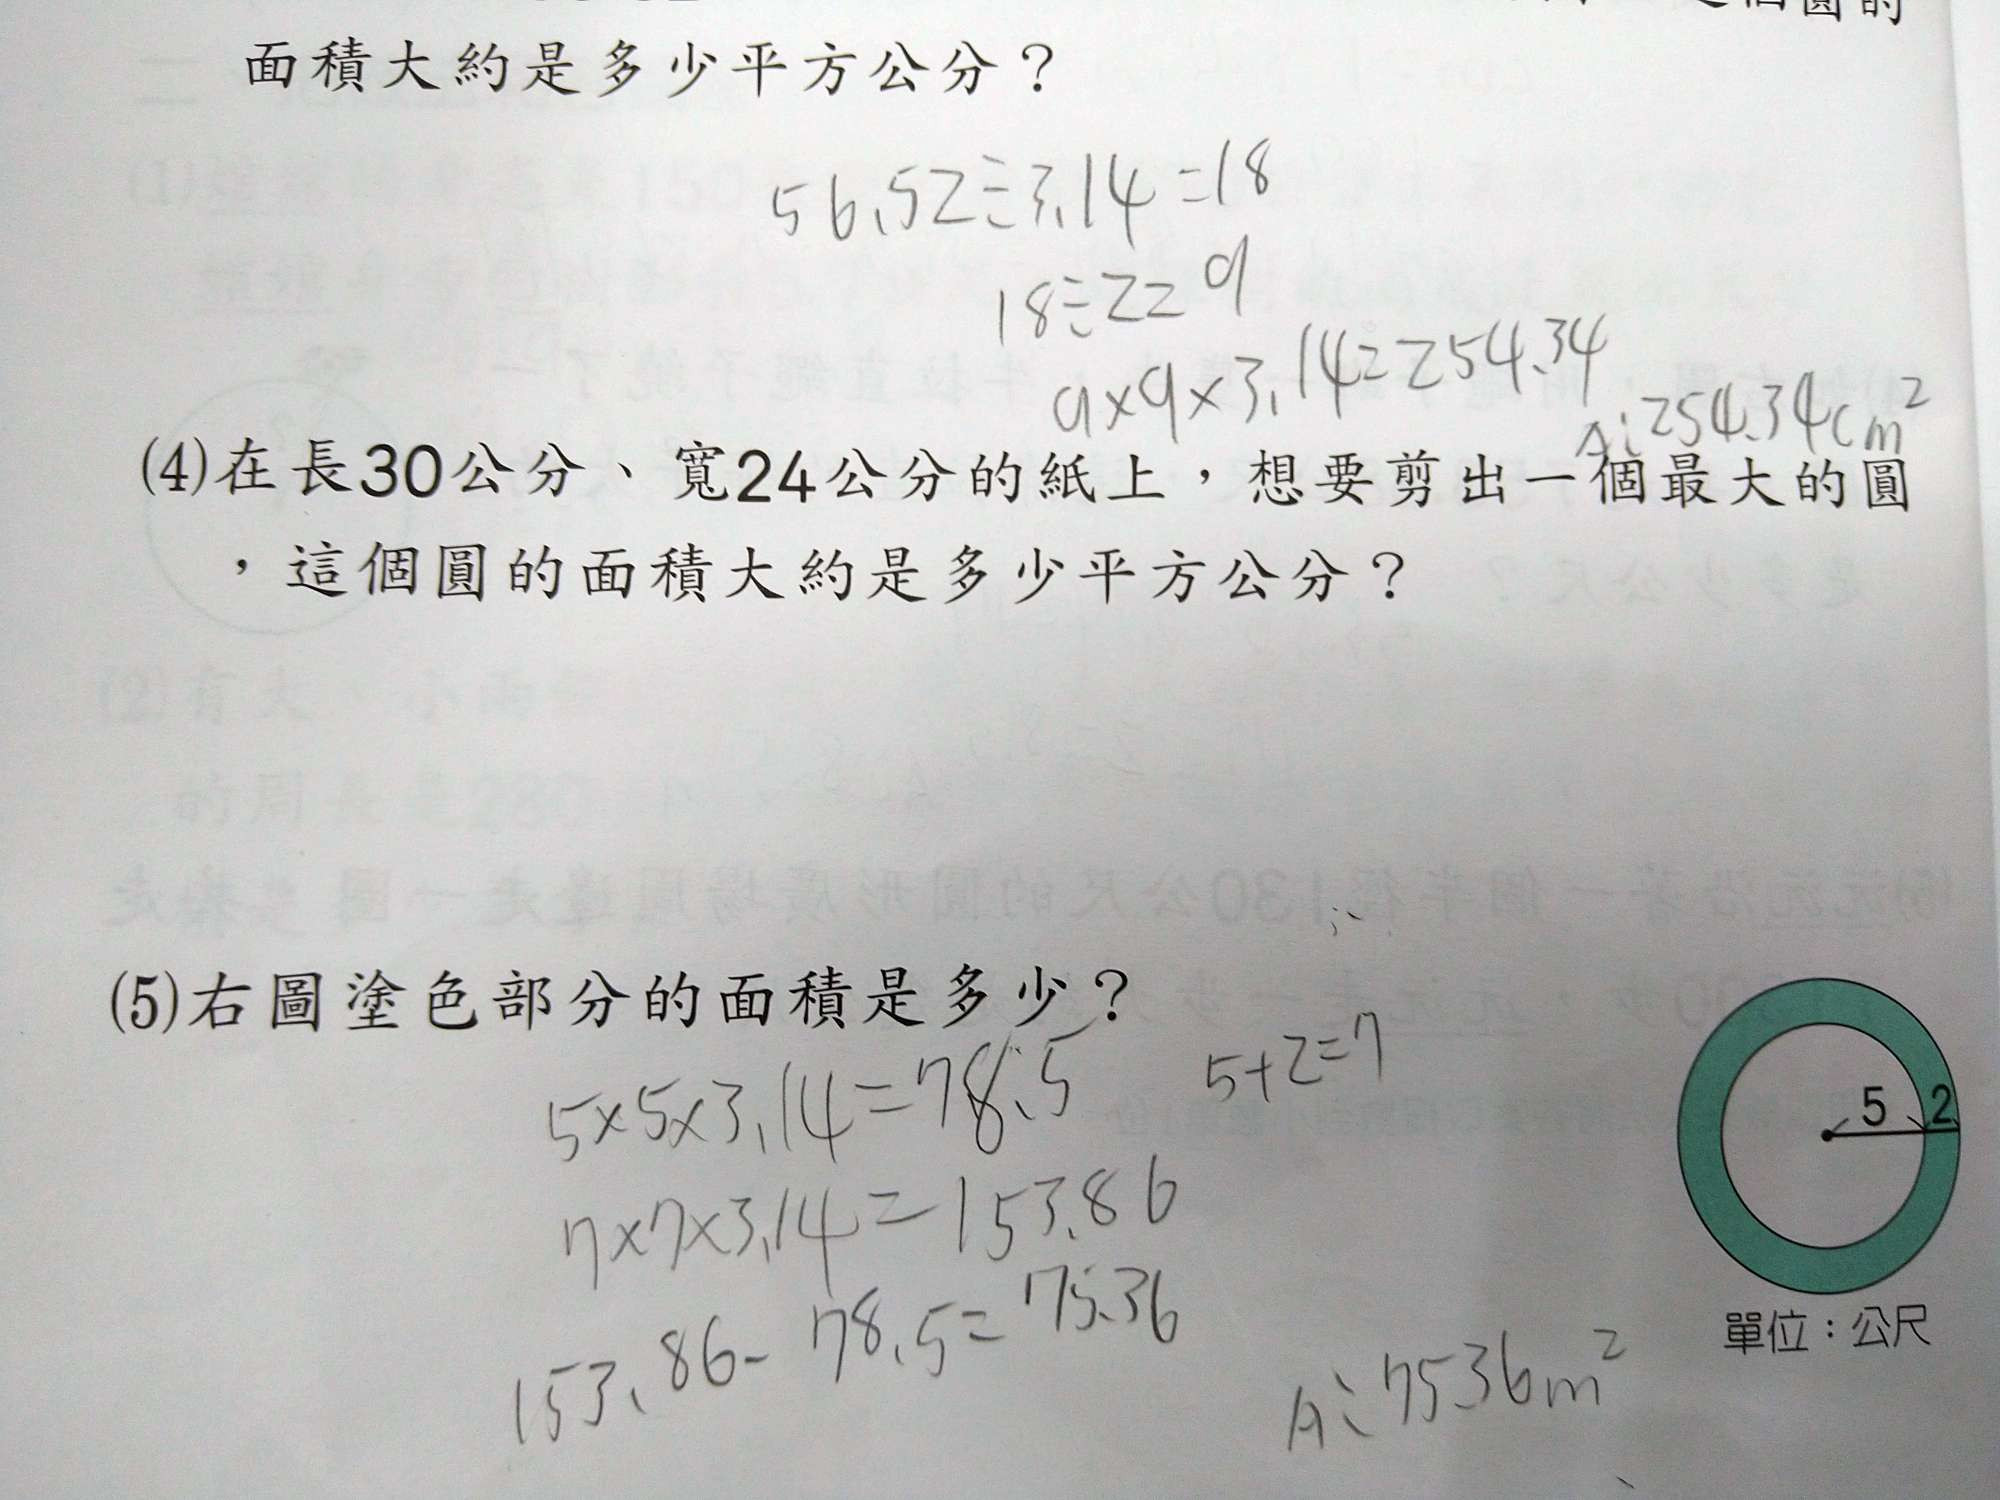 個圓的
面積大約是多少平方公分？
56.52÷3.14=18
18÷2=9
9×9×3.14=254.34
A:254.34cm²
(4)在長30公分、寬24公分的紙上，想要剪出一個最大的圓
，這個圓的面積大約是多少平方公分？
(5)右圖塗色部分的面積是多少？
5×5×3.14=78.5
5+2=7
7×7×3.14=153.86
153.86-78.5=75.36
A:75.36m²
5 2
單位：公尺